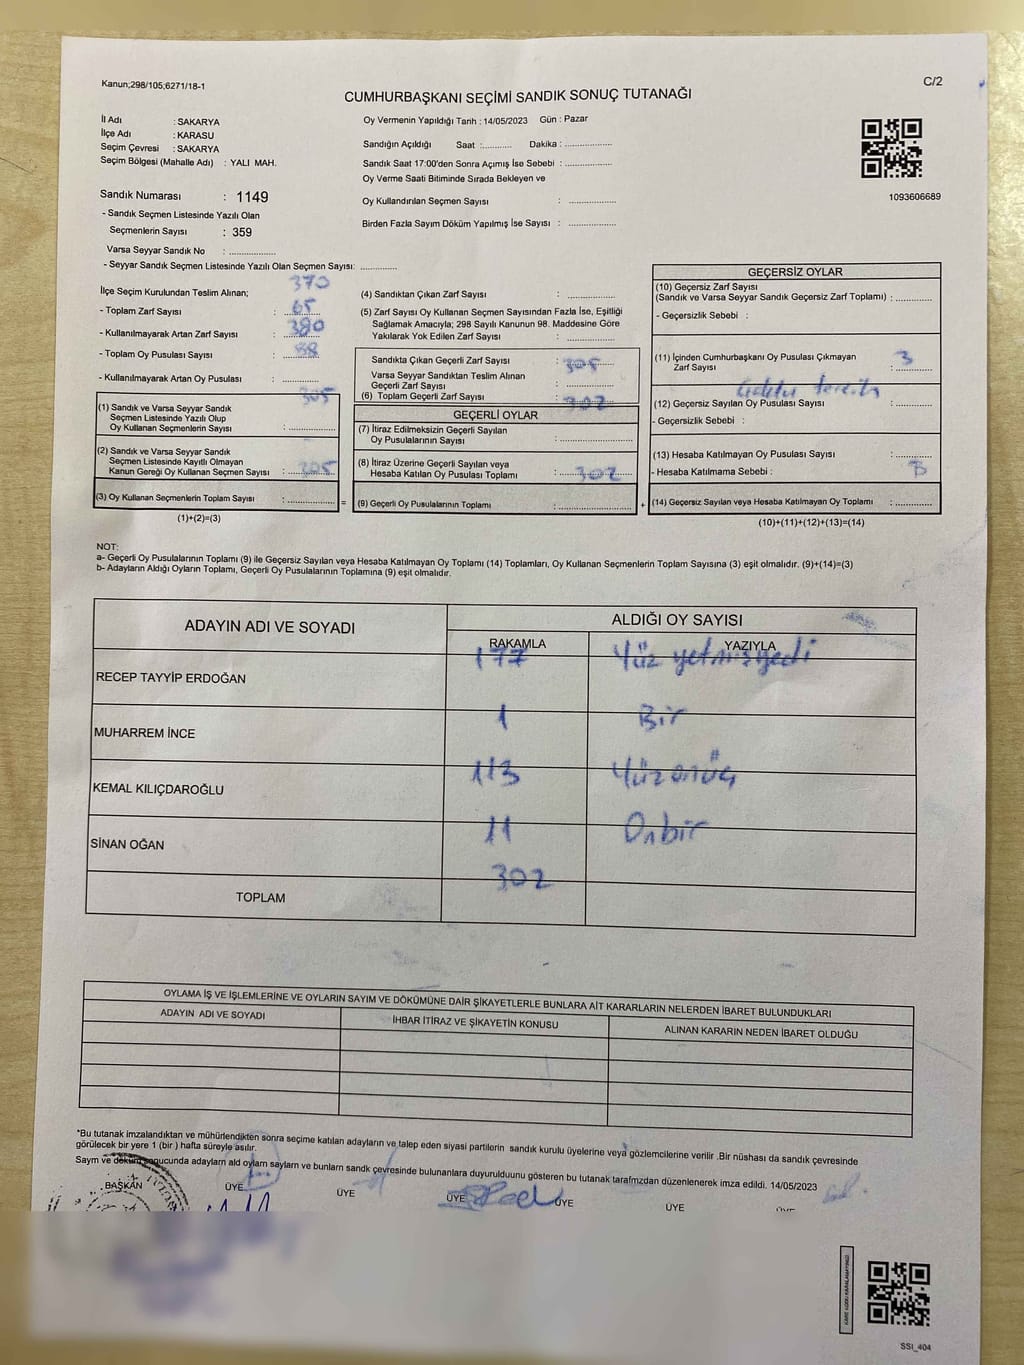 Kanun;298/105;6271/18-1
C/2
CUMHURBAŞKANI SEÇİMİ SANDIK SONUÇ TUTANAĞI
İl Adı : SAKARYA
İlçe Adı : KARASU
Seçim Çevresi : SAKARYA
Seçim Bölgesi (Mahalle Adı) : YALI MAH.
Oy Vermenin Yapıldığı Tarih : 14/05/2023 Gün : Pazar
Sandığın Açıldığı Saat :........... Dakika : ................
Sandık Saat 17:00'den Sonra Açımış İse Sebebi : ................
Oy Verme Saati Bitiminde Sırada Bekleyen ve
Oy Kullandırılan Seçmen Sayısı : ................
Birden Fazla Sayım Döküm Yapılmış İse Sayısı : ................
1093606689
Sandık Numarası : 1149
- Sandık Seçmen Listesinde Yazılı Olan
Seçmenlerin Sayısı : 359
Varsa Seyyar Sandık No : ................
- Seyyar Sandık Seçmen Listesinde Yazılı Olan Seçmen Sayısı: ............
370
İlçe Seçim Kurulundan Teslim Alınan;
- Toplam Zarf Sayısı : 65
- Kullanılmayarak Artan Zarf Sayısı : 380
- Toplam Oy Pusulası Sayısı : 88
- Kullanılmayarak Artan Oy Pusulası : ............
305
(1) Sandık ve Varsa Seyyar Sandık
Seçmen Listesinde Yazılı Olup
Oy Kullanan Seçmenlerin Sayısı : ................
(2) Sandık ve Varsa Seyyar Sandık
Seçmen Listesinde Kayıtlı Olmayan
Kanun Gereği Oy Kullanan Seçmen Sayısı : 305
(3) Oy Kullanan Seçmenlerin Toplam Sayısı : ................ =
(1)+(2)=(3)
(4) Sandıktan Çıkan Zarf Sayısı : ................
(5) Zarf Sayısı Oy Kullanan Seçmen Sayısından Fazla İse, Eşitliği
Sağlamak Amacıyla; 298 Sayılı Kanunun 98. Maddesine Göre
Yakılarak Yok Edilen Zarf Sayısı : ................
Sandıkta Çıkan Geçerli Zarf Sayısı : 305
Varsa Seyyar Sandıktan Teslim Alınan
Geçerli Zarf Sayısı : ................
(6) Toplam Geçerli Zarf Sayısı : 302
GEÇERLİ OYLAR
(7) İtiraz Edilmeksizin Geçerli Sayılan
Oy Pusulalarının Sayısı : ................
(8) İtiraz Üzerine Geçerli Sayılan veya
Hesaba Katılan Oy Pusulası Toplamı : 302
(9) Geçerli Oy Pusulalarının Toplamı : ................ +
GEÇERSİZ OYLAR
(10) Geçersiz Zarf Sayısı
(Sandık ve Varsa Seyyar Sandık Geçersiz Zarf Toplamı) : ............
- Geçersizlik Sebebi :
(11) İçinden Cumhurbaşkanı Oy Pusulası Çıkmayan
Zarf Sayısı : 3
(12) Geçersiz Sayılan Oy Pusulası Sayısı : ............
- Geçersizlik Sebebi :
(13) Hesaba Katılmayan Oy Pusulası Sayısı : ............
- Hesaba Katılmama Sebebi : 3
(14) Geçersiz Sayılan veya Hesaba Katılmayan Oy Toplamı : ............
(10)+(11)+(12)+(13)=(14)
NOT:
a- Geçerli Oy Pusulalarının Toplamı (9) ile Geçersiz Sayılan veya Hesaba Katılmayan Oy Toplamı (14) Toplamları, Oy Kullanan Seçmenlerin Toplam Sayısına (3) eşit olmalıdır. (9)+(14)=(3)
b- Adayların Aldığı Oyların Toplamı, Geçerli Oy Pusulalarının Toplamına (9) eşit olmalıdır.
ADAYIN ADI VE SOYADI ALDIĞI OY SAYISI
RAKAMLA YAZIYLA
177 Yüz yetmişyedi
RECEP TAYYİP ERDOĞAN
1 Bir
MUHARREM İNCE
113 Yüzonüç
KEMAL KILIÇDAROĞLU
11 Onbir
SİNAN OĞAN
302
TOPLAM
OYLAMA İŞ VE İŞLEMLERİNE VE OYLARIN SAYIM VE DÖKÜMÜNE DAİR ŞİKAYETLERLE BUNLARA AİT KARARLARIN NELERDEN İBARET BULUNDUKLARI
ADAYIN ADI VE SOYADI İHBAR İTİRAZ VE ŞİKAYETİN KONUSU ALINAN KARARIN NEDEN İBARET OLDUĞU
*Bu tutanak imzalandıktan ve mühürlendikten sonra seçime katılan adayların ve talep eden siyasi partilerin sandık kurulu üyelerine veya gözlemcilerine verilir .Bir nüshası da sandık çevresinde
görülecek bir yere 1 (bir ) hafta süreyle asılır.
Sayım ve döküm sonucunda adayların ald oyların sayların ve bunların sandk çevresinde bulunanlara duyurulduunu gösteren bu tutanak tarafmzdan düzenlenerek imza edildi. 14/05/2023
BAŞKAN ÜYE ÜYE ÜYE ÜYE ÜYE
SSI_404